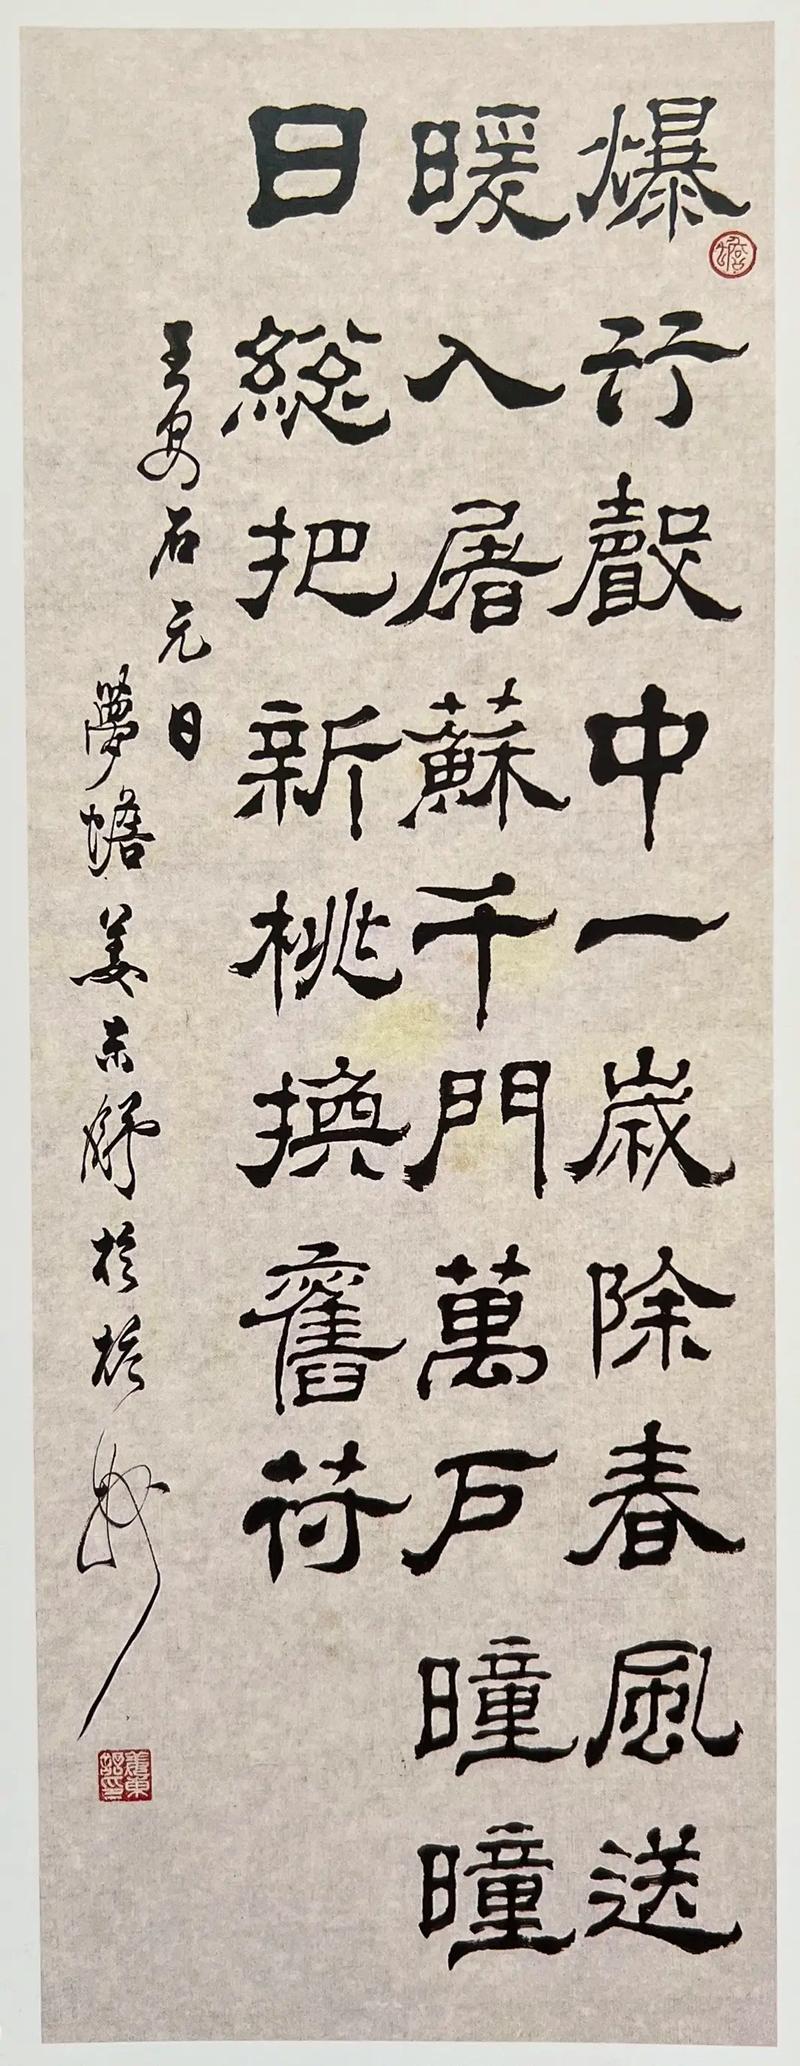 蟾
爆竹聲中一歲除春風送
暖入屠蘇千門萬户曈曈
日總把新桃換舊符
王安石元日
夢蟾姜东舒於杭州
姜東舒印